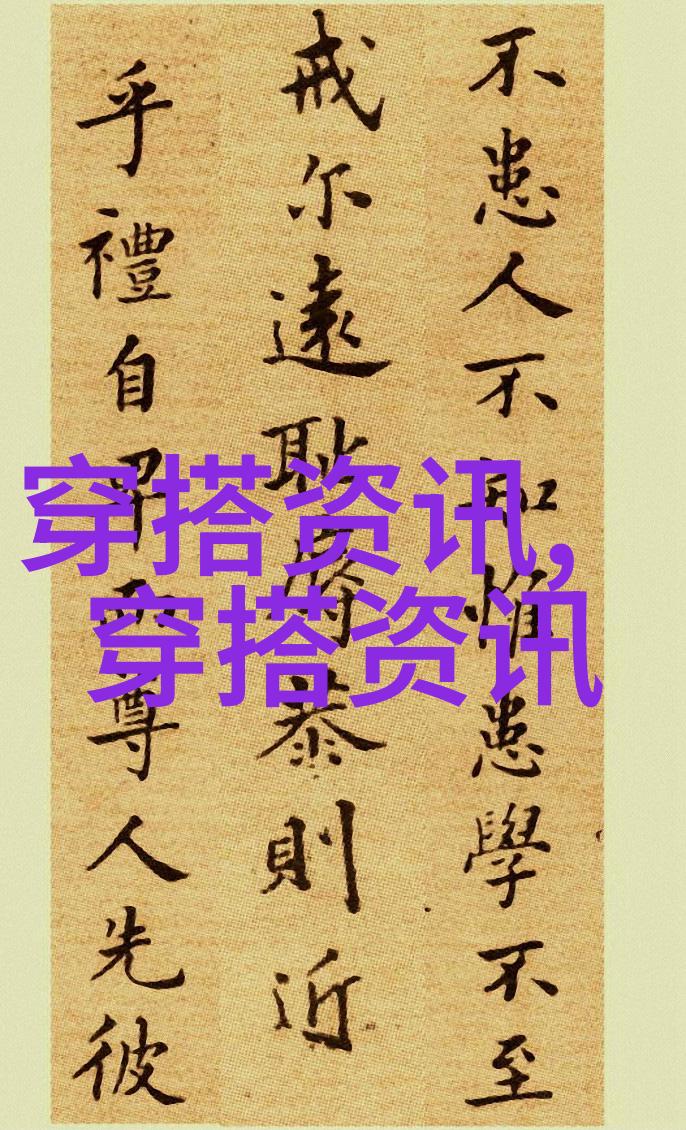 不患人不知惟患學不至
戒尔遠耻辱恭則近
乎禮自卑而尊人先彼
穿搭资讯,
穿搭资讯